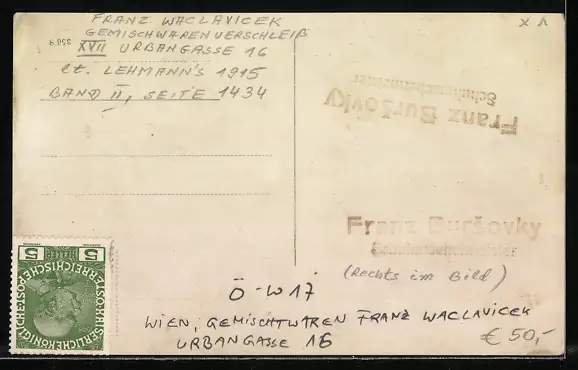 FRANZ WACLAVICEK
GEMISCHWARENVERSCHLEIß
XVII URBANGASSE 16
lt. LEHMANN'S 1915
BAND II, SEITE 1434
X 1
Franz Buršovky
Schuhmachermeister
Franz Buršovky
Schuhmachermeister
(Rechts im Bild)
Ö-W17
WIEN, GEMISCHTWAREN FRANZ WACLAVICEK
URBANGASSE 16
€ 50,-
5 HELLER 5
KAISERLICHEKÖNIGL
ÖSTERREICHISCHE
POST